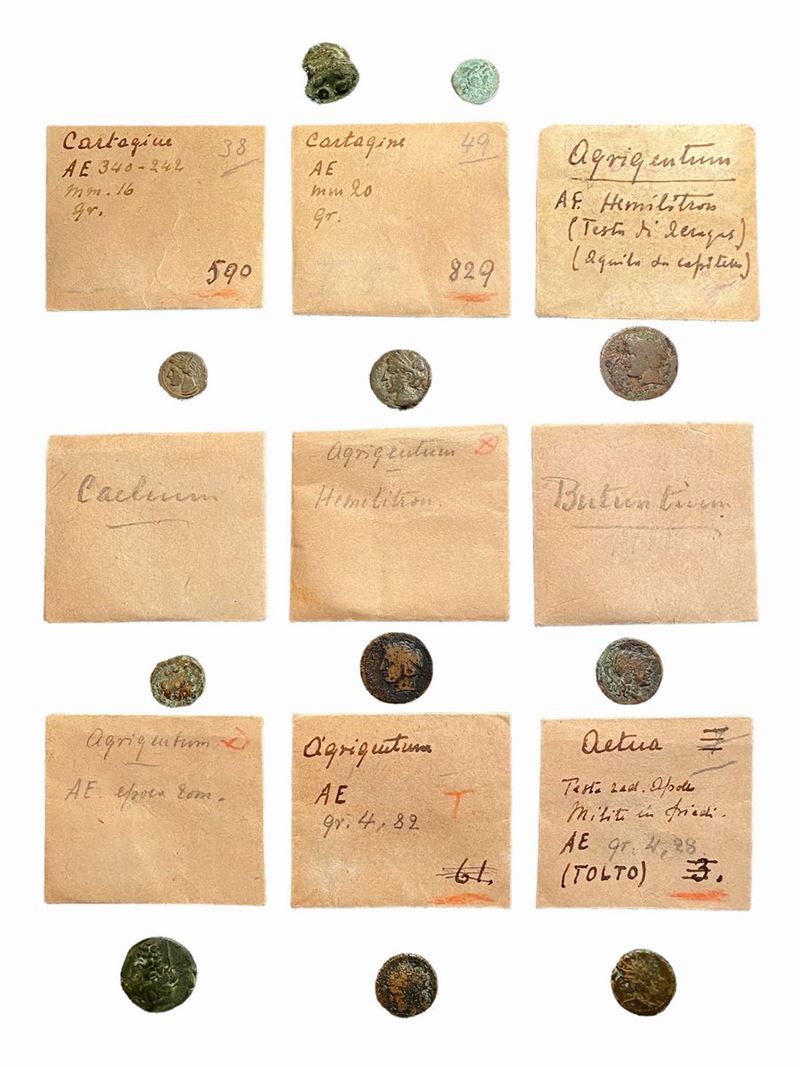 Cartagine 38
AE 340-242
mm. 16
gr.
590
Cartagine 49
AE
mm 20
gr.
829
Agrigentum
AE Hemilitron
(Testa di Acragas)
(Aquila su capitello)
Caelium
Agrigentum
Hemilitron.
Butuntium
Agrigentum
AE. epoca rom.
Agrigentum
AE T
gr. 4,82
61.
Aetna 7
Testa rad. Apollo
Milite in piedi.
AE gr. 4,28
(TOLTO) 3.